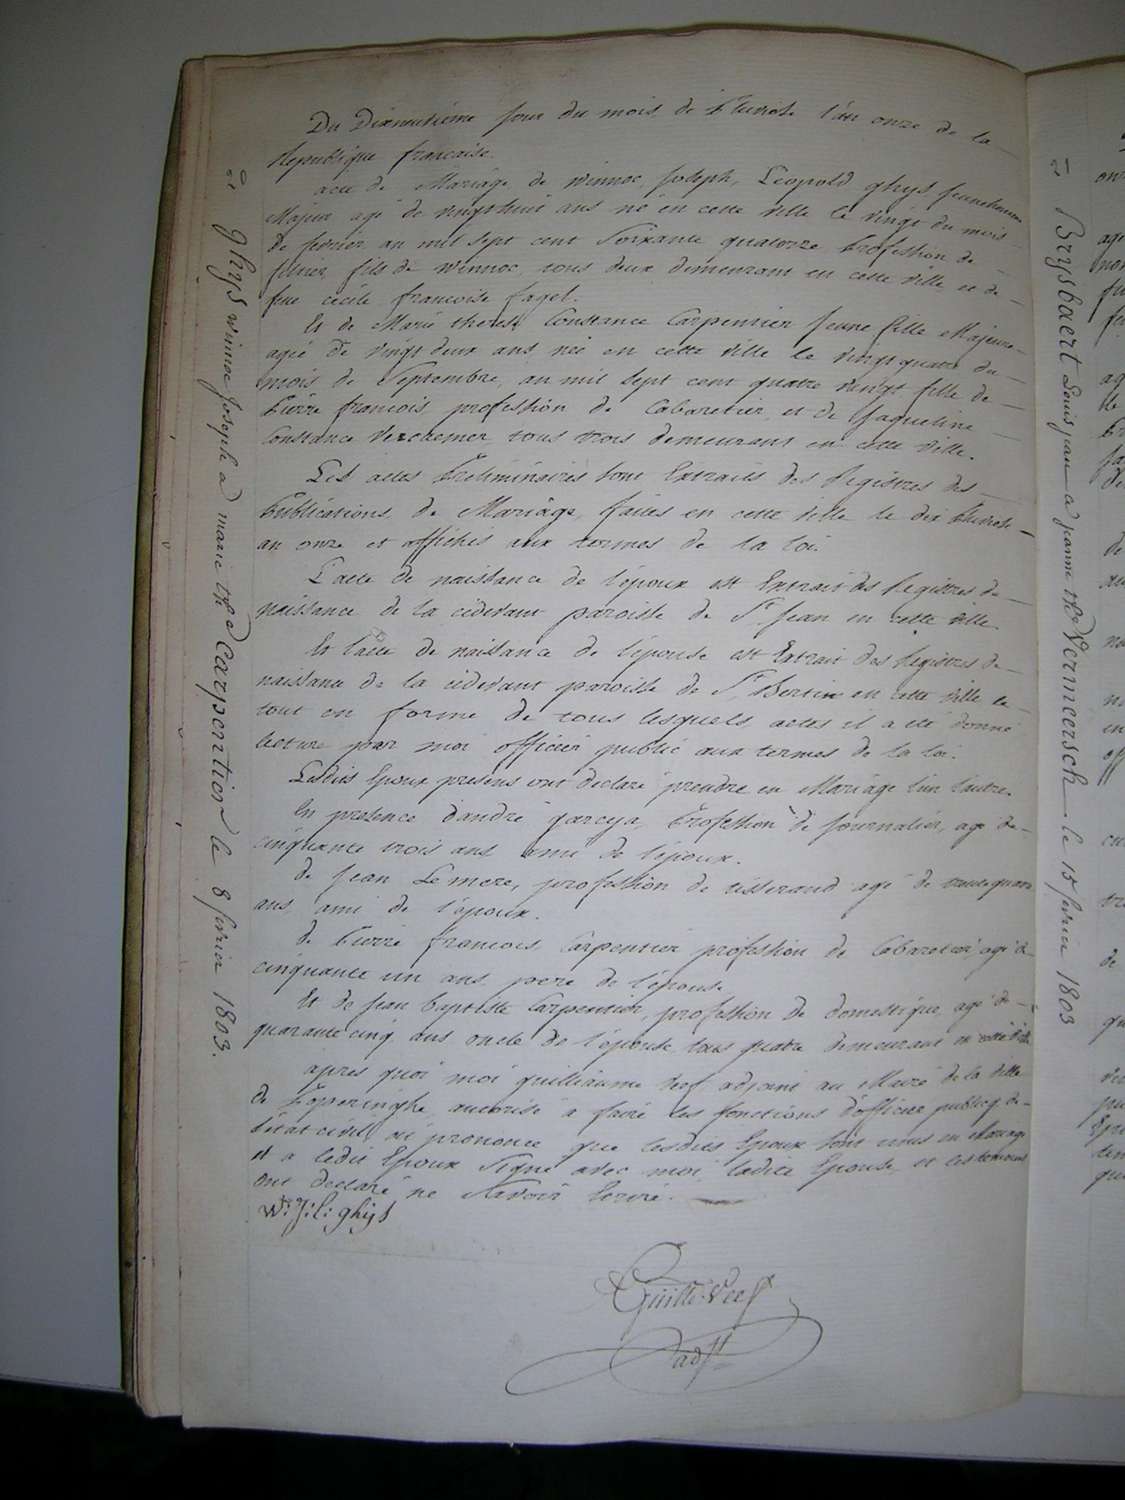 Du Dixneuvième jour du mois de Pluviose l'an onze de la
Republique francaise.
acte de Mariage de winnoc, Joseph, Leopold ghys jeunehomme
Majeur agé de vingthuit ans né en cette ville le vingt du mois
de fevrier an mil sept cent Soixante quatorze Profession de
fils de winnoc, tous deux demeurant en cette ville et de
feue cecile francoise fagel.
Et de Marie therese Constance Carpentier Jeune fille Majeure
agée de vingt deux ans née en cette ville le vingt quatre du
mois de Septembre, an mil sept cent quatre vingt fille de
Pierre francois, profession de Cabaretier, et de Jaqueline
Constance Vercremer tous trois demeurant en cette ville.
Les actes Preliminaires sont Extraits des Registres des
Publications de Mariage, faites en cette ville le dix Pluviose
an onze et affichés aux termes de la loi.
L'acte de naissance de l'époux est Extrait des Registres de
naissance de la cidevant paroisse de St Jean en cette ville
Et l'acte de naissance de l'épouse est Extrait des Registres de
naissance de la cidevant paroisse de St Bertin en cette ville le
tout en forme de tous lesquels actes il a été donné
lecture par moi officier public aux termes de la loi.
Lesdits Epoux presens ont declaré prendre en Mariage l'un l'autre.
En presence d'andré garcya, Profession de journalier, agé de
cinquante trois ans ami de l'époux.
de Jean Lemere, profession de tisserand agé de trente quatre
ans ami de l'époux.
de Pierre francois Carpentier profession de Cabaretier agé de
cinquante un ans pere de l'épouse
Et de Jean baptiste Carpentier, profession de domestique, agé de
quarante cinq ans oncle de l'épouse tous quatre demeurant en cette ville
apres quoi moi guilliaume Veef adjoint au Maire de la ville
de Poperinghe autorisé a faire les fonctions d'officier public de
l'état civil, ai prononcé que lesdits Epoux sont unis en Mariage
et a ledit Epoux Signé avec moi, ladite Epouse et les temoins
ont declaré ne Savoir Ecrire.
W: J: L: ghijs
Guille Veef
adjt
ghys winnoc Joseph a marie the Carpentier le 8 fevrier 1803.
Brysbaert Louis jean a jeanne the Vermeersch le 15 fevrier 1803